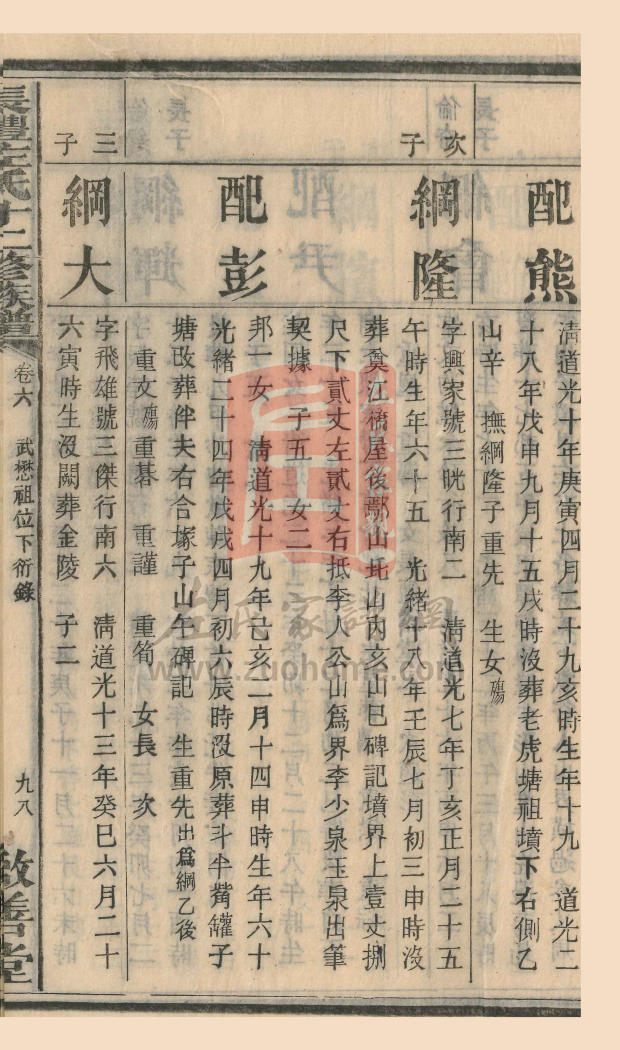 配熊
清道光十年庚寅四月二十九亥時生年十九 道光二
十八年戊申九月十五戌時沒葬老虎塘祖墳下右側乙
山辛 撫綱隆子重先 生女殤
次子
綱隆
字興家號三晄行南二 清道光七年丁亥正月二十五
午時生年六十五 光緒十八年壬辰七月初三申時沒
葬奠江橋屋後鄢山北山內亥山巳碑記墳界上壹丈捌
尺下貳丈左貳丈右抵李人公山為界李少泉玉泉出筆
契據 子五 女二
配彭
邦一女 清道光十九年己亥二月十四申時生年六十
光緒二十四年戊戌四月初六辰時沒原葬斗半觜罐子
塘改葬伴夫右合塚子山午碑記 生重先出為綱乙後
重文殤重碁 重謹 重筍 女長 次
三子
綱大
字飛雄號三傑行南六 清道光十三年癸巳六月二十
六寅時生沒闕葬金陵 子二
長澧左氏十二修族譜
卷六 武懋祖位下衍錄
九八
敬善堂
左氏家譜網
www.zuohome.com